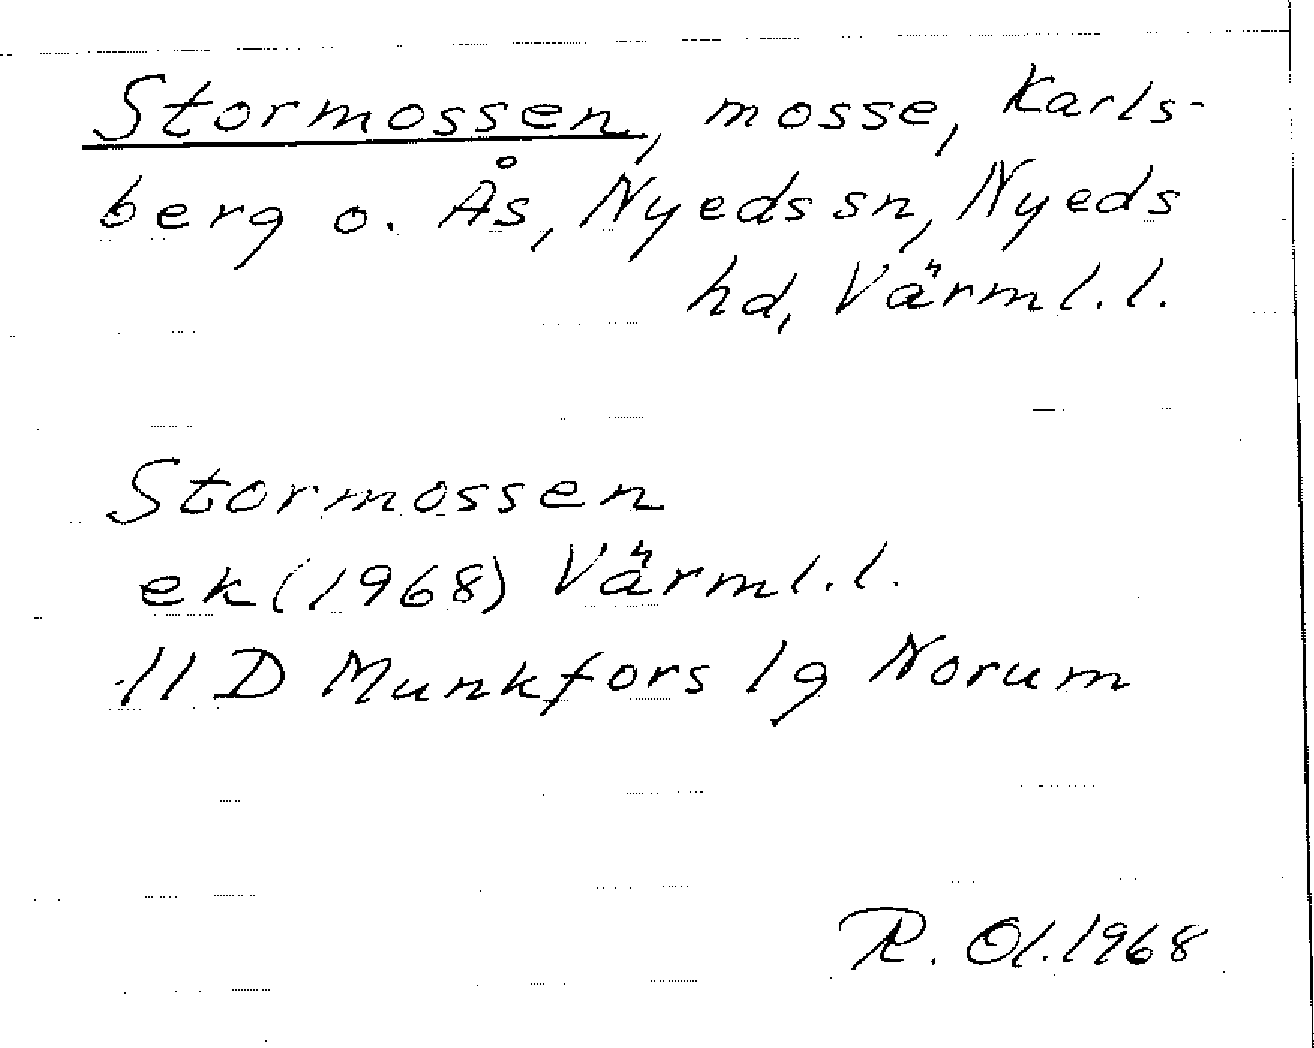 Stormossen, mosse, Karls-
berg o. Ås, Nyeds sn, Nyeds
hd, Värml. l.
Stormossen
ek (1968) Värml. l.
11 D Munkfors 1g Norum
R. Ol. 1968